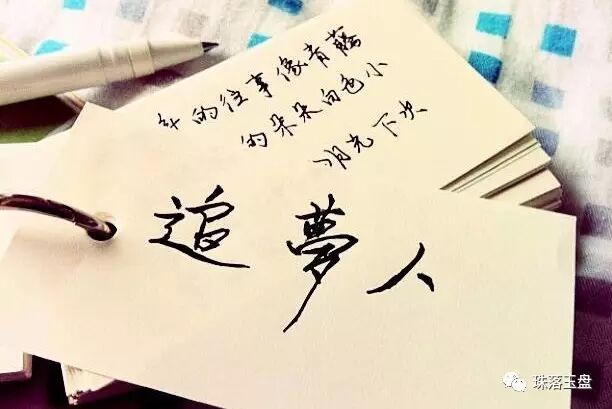 年的往事像青藤
的朵朵白色小
月光下次
追夢人
珠落玉盘